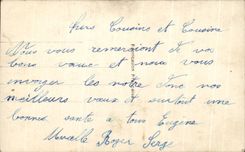 chers Cousins et Cousine
Nous vous remerciont de vos
bons vœux et nous vous
envoyer les notre Tous nos
meilleurs vœux et surtout une
bonnes santé a tous Eugène
Marcelle Roger Serge